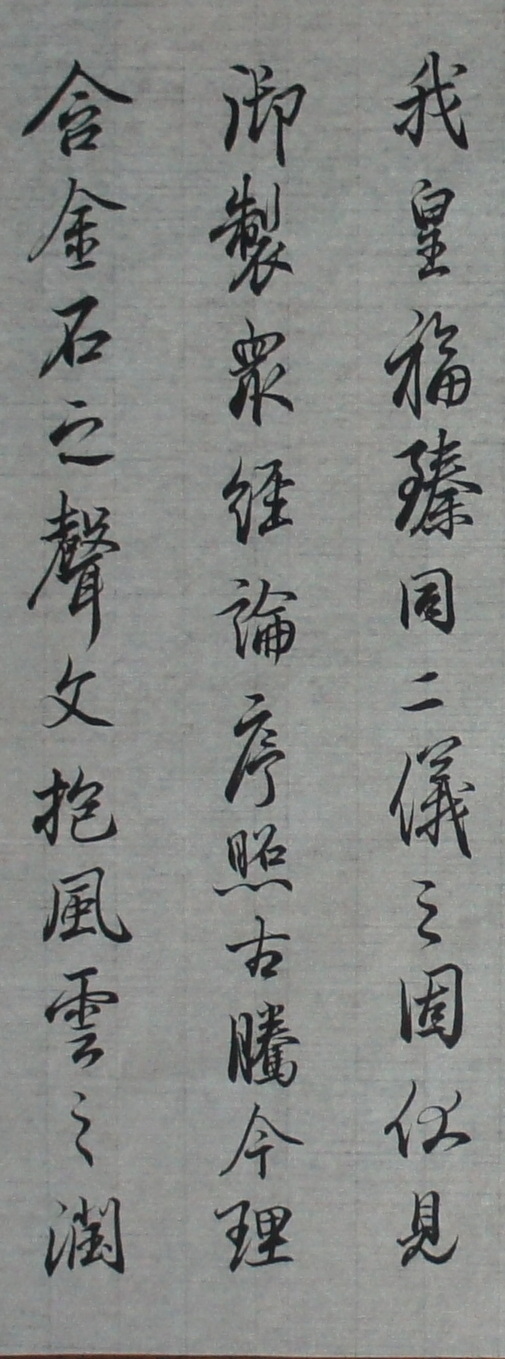 我皇福臻同二儀之固伏見
御製眾經論序照古騰今理
含金石之聲文抱風雲之潤